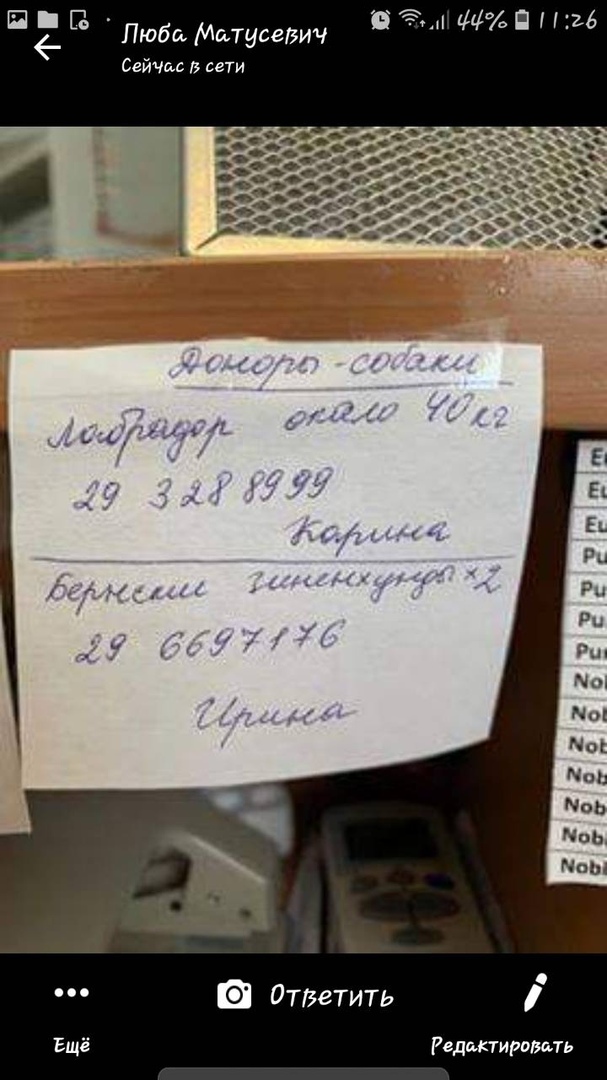 44% 11:26
Люба Матусевич
Сейчас в сети
Доноры - собаки
Лабрадор около 40 кг
29 328 8999
Карина
Бернские зиненхунды x2
29 6697176
Ирина
Eu
Eu
Eu
Pu
Pu
Pu
Pu
Nol
Nob
Nob
Nob
Nob
Nobi
Nobi
Ответить
Ещё
Редактировать